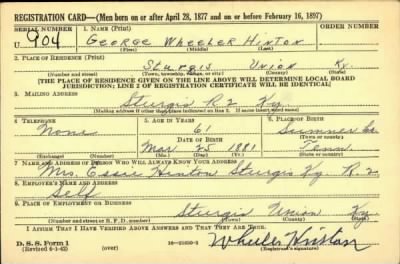 REGISTRATION CARD—(Men born on or after April 28, 1877 and on or before February 16, 1897)
SERIAL NUMBER 1. NAME (Print) ORDER NUMBER
U 904 George Wheeler Hinton
(First) (Middle) (Last)
2. PLACE OF RESIDENCE (Print)
Sturgis Union Ky.
(Number and street) (Town, township, village, or city) (County) (State)
[THE PLACE OF RESIDENCE GIVEN ON THE LINE ABOVE WILL DETERMINE LOCAL BOARD
JURISDICTION; LINE 2 OF REGISTRATION CERTIFICATE WILL BE IDENTICAL]
3. MAILING ADDRESS
Sturgis R 2 Ky.
[Mailing address if other than place indicated on line 2. If same insert word same]
4. TELEPHONE 5. AGE IN YEARS 6. PLACE OF BIRTH
None 61 Sumner Co
DATE OF BIRTH (Town or county)
Mar 25 1881 Tenn.
(Exchange) (Number) (Mo.) (Day) (Yr.) (State or country)
7. NAME AND ADDRESS OF PERSON WHO WILL ALWAYS KNOW YOUR ADDRESS
Mrs. Essie Hinton Sturgis Ky. R. 2
8. EMPLOYER'S NAME AND ADDRESS
Self
9. PLACE OF EMPLOYMENT OR BUSINESS
Sturgis Union Ky.
(Number and street or R. F. D. number) (Town) (County) (State)
I AFFIRM THAT I HAVE VERIFIED ABOVE ANSWERS AND THAT THEY ARE TRUE.
D. S. S. Form 1
(Revised 4-1-42) (over) Wheeler Hinton
(Registrant's signature)